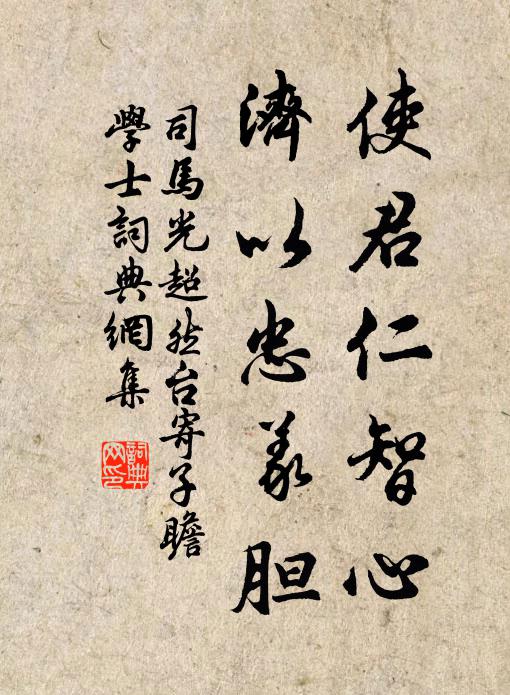 使君仁智心
濟以忠義胆
司馬光超然台寄子瞻
學士詞典網集
詞典网印